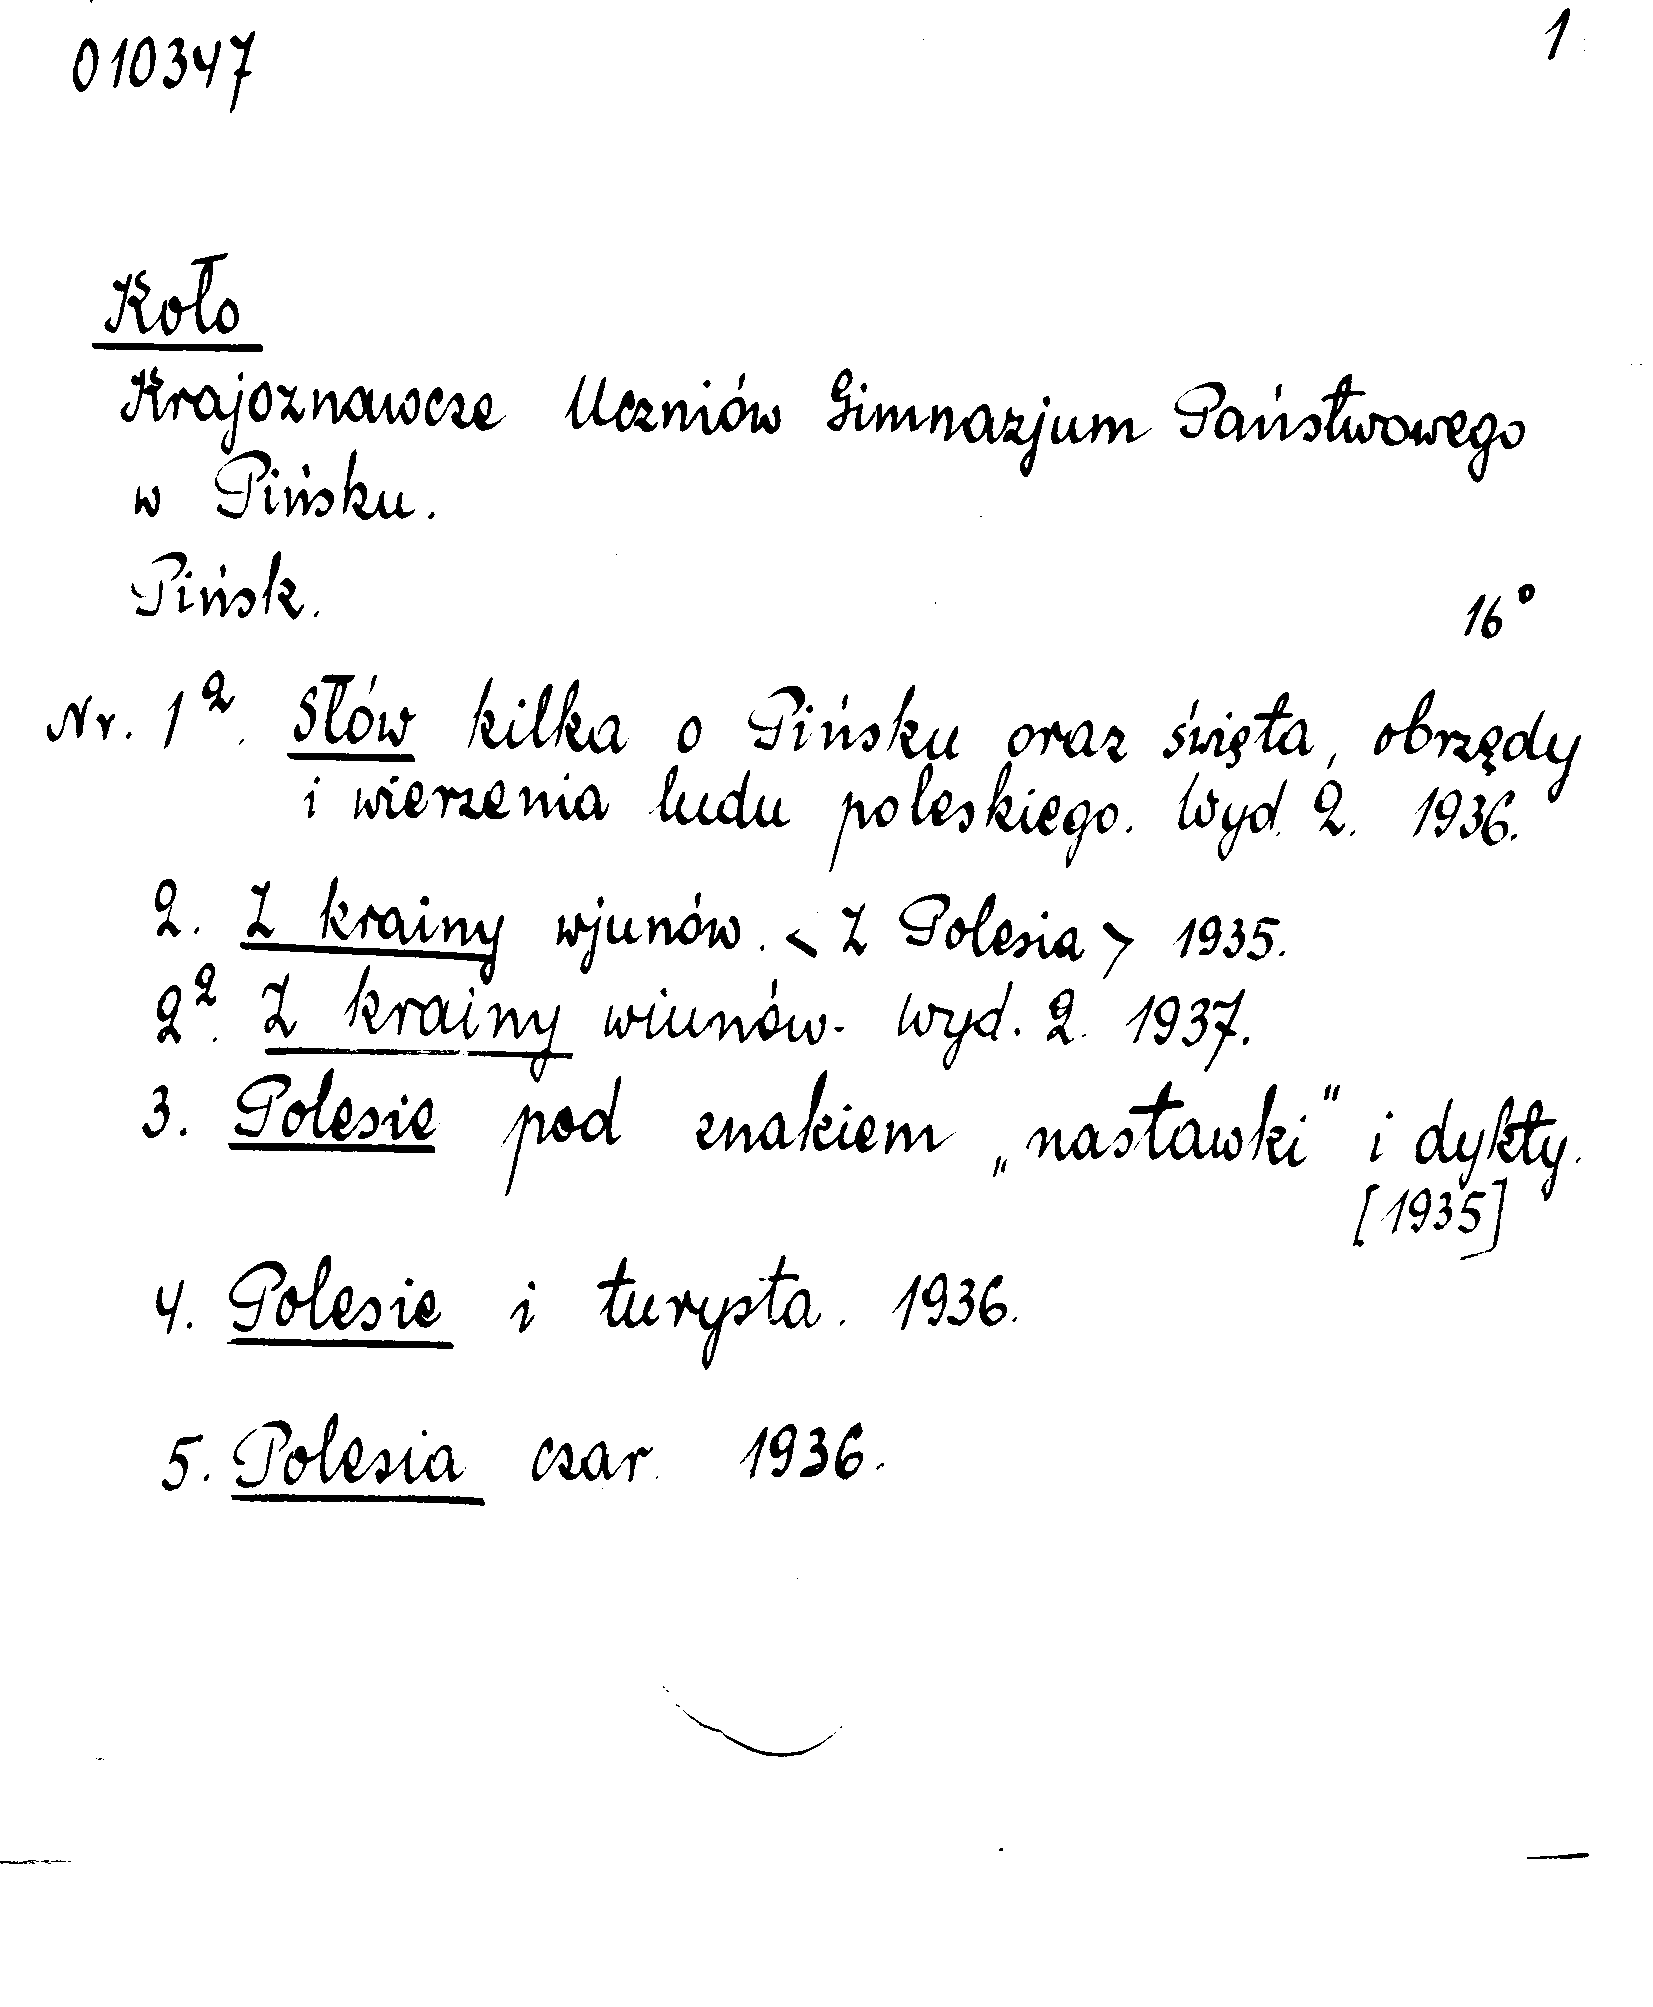 010347
1
Koło
Krajoznawcze Uczniów Gimnazjum Państwowego
w Pińsku.
Pińsk.
16°
Nr. 1². Słów kilka o Pińsku oraz święta, obrzędy
i wierzenia ludu poleskiego. Wyd. 2. 1936.
2. Z krainy wjunów. < Z Polesia > 1935.
2². Z krainy wiunów. Wyd. 2. 1937.
3. Polesie pod znakiem „nastawki" i dykty.
[1935]
4. Polesie i turysta. 1936.
5. Polesia czar. 1936.